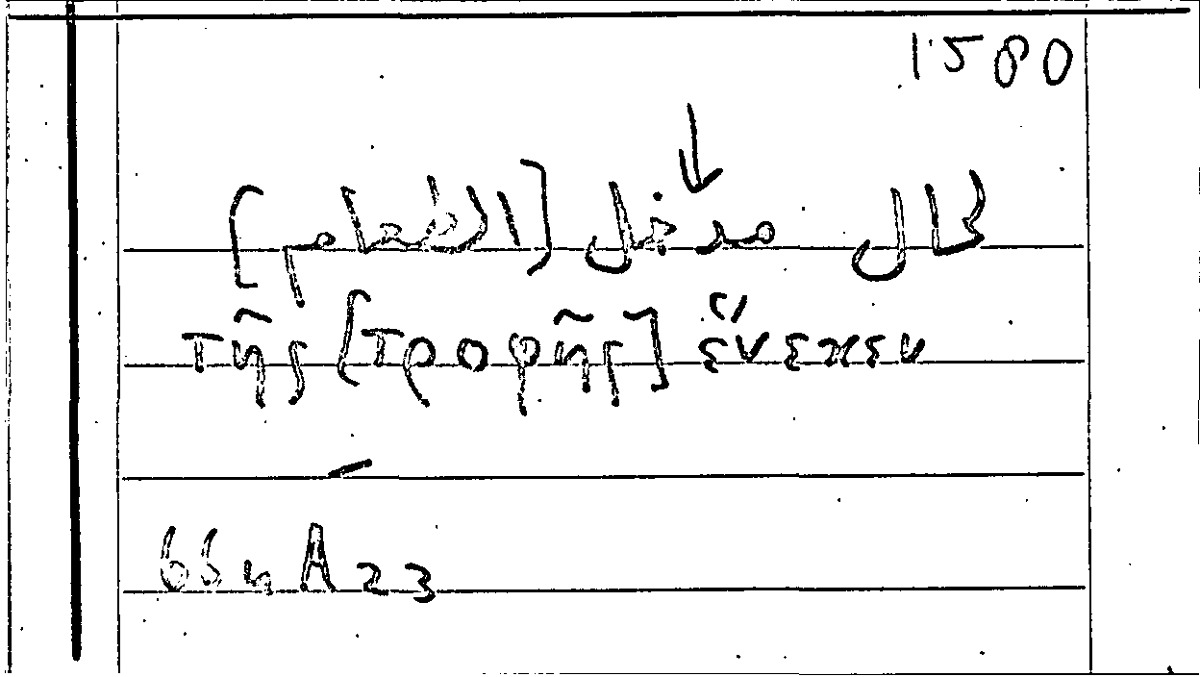 1580
لحال مدخل [الطعام]
τῆς [τροφῆς] ἕνεκεν
664 A 23